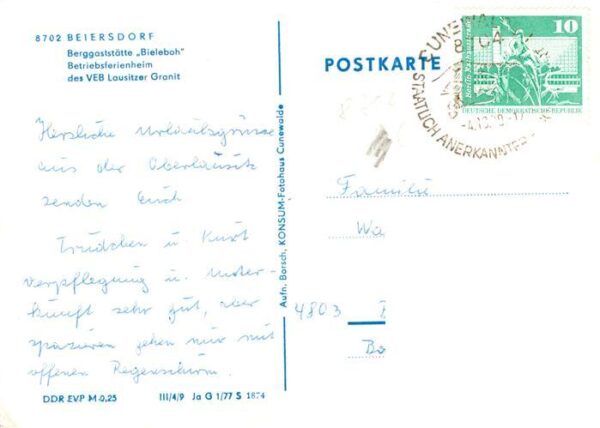 8702 BEIERSDORF
Berggaststätte „Bieleboh"
Betriebsferienheim
des VEB Lausitzer Granit
Herzliche Urlaubsgrüsse
aus der Oberlausitz
senden Euch
Trudchen u. Kurt
Verpflegung u. Unter-
kunft sehr gut, aber
spazieren gehen nur mit
offenen Regenschirm.
DDR EVP M 0,25
III/4/9 Ja G 1/77 S 1874
Aufn. Borsch, KONSUM-Fotohaus Cunewalde
POSTKARTE
CUNEWALDE
STAATLICH ANERKANNTER
10
DEUTSCHE DEMOKRATISCHE REPUBLIK
Familie
Wa
4803
Bo